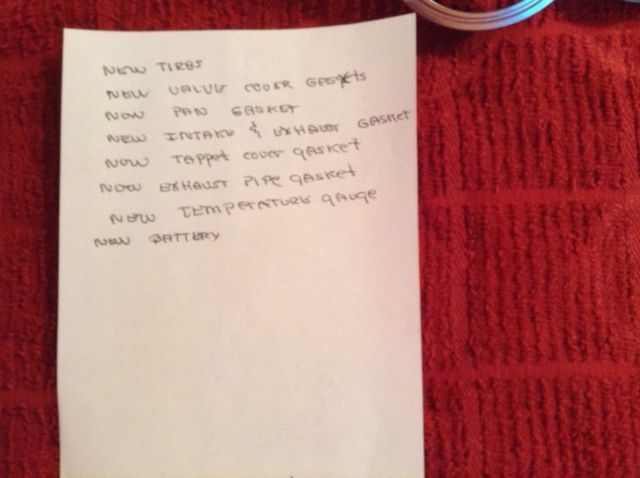 NEW TIRES
NEW VALVE COVER GASGETS
NEW PAN GASKET
NEW INTAKE & EXHAUST GASKET
NEW TAPPET COVER GASKET
NEW EXHAUST PIPE GASKET
NEW TEMPERATURE GAUGE
NEW BATTERY